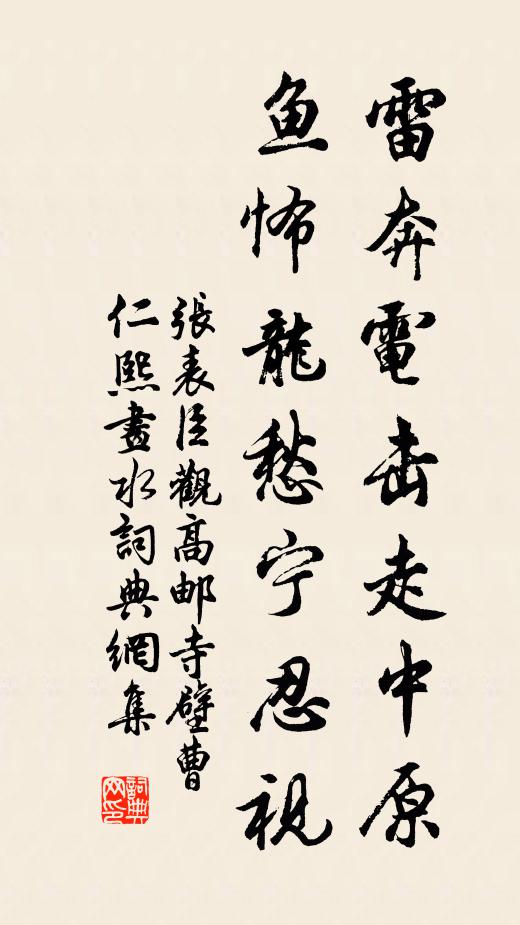 雷奔電击走中原
鱼怖龍愁宁忍視
張表臣觀高邮寺壁曹
仁熙畫水詞典網集
詞典網印